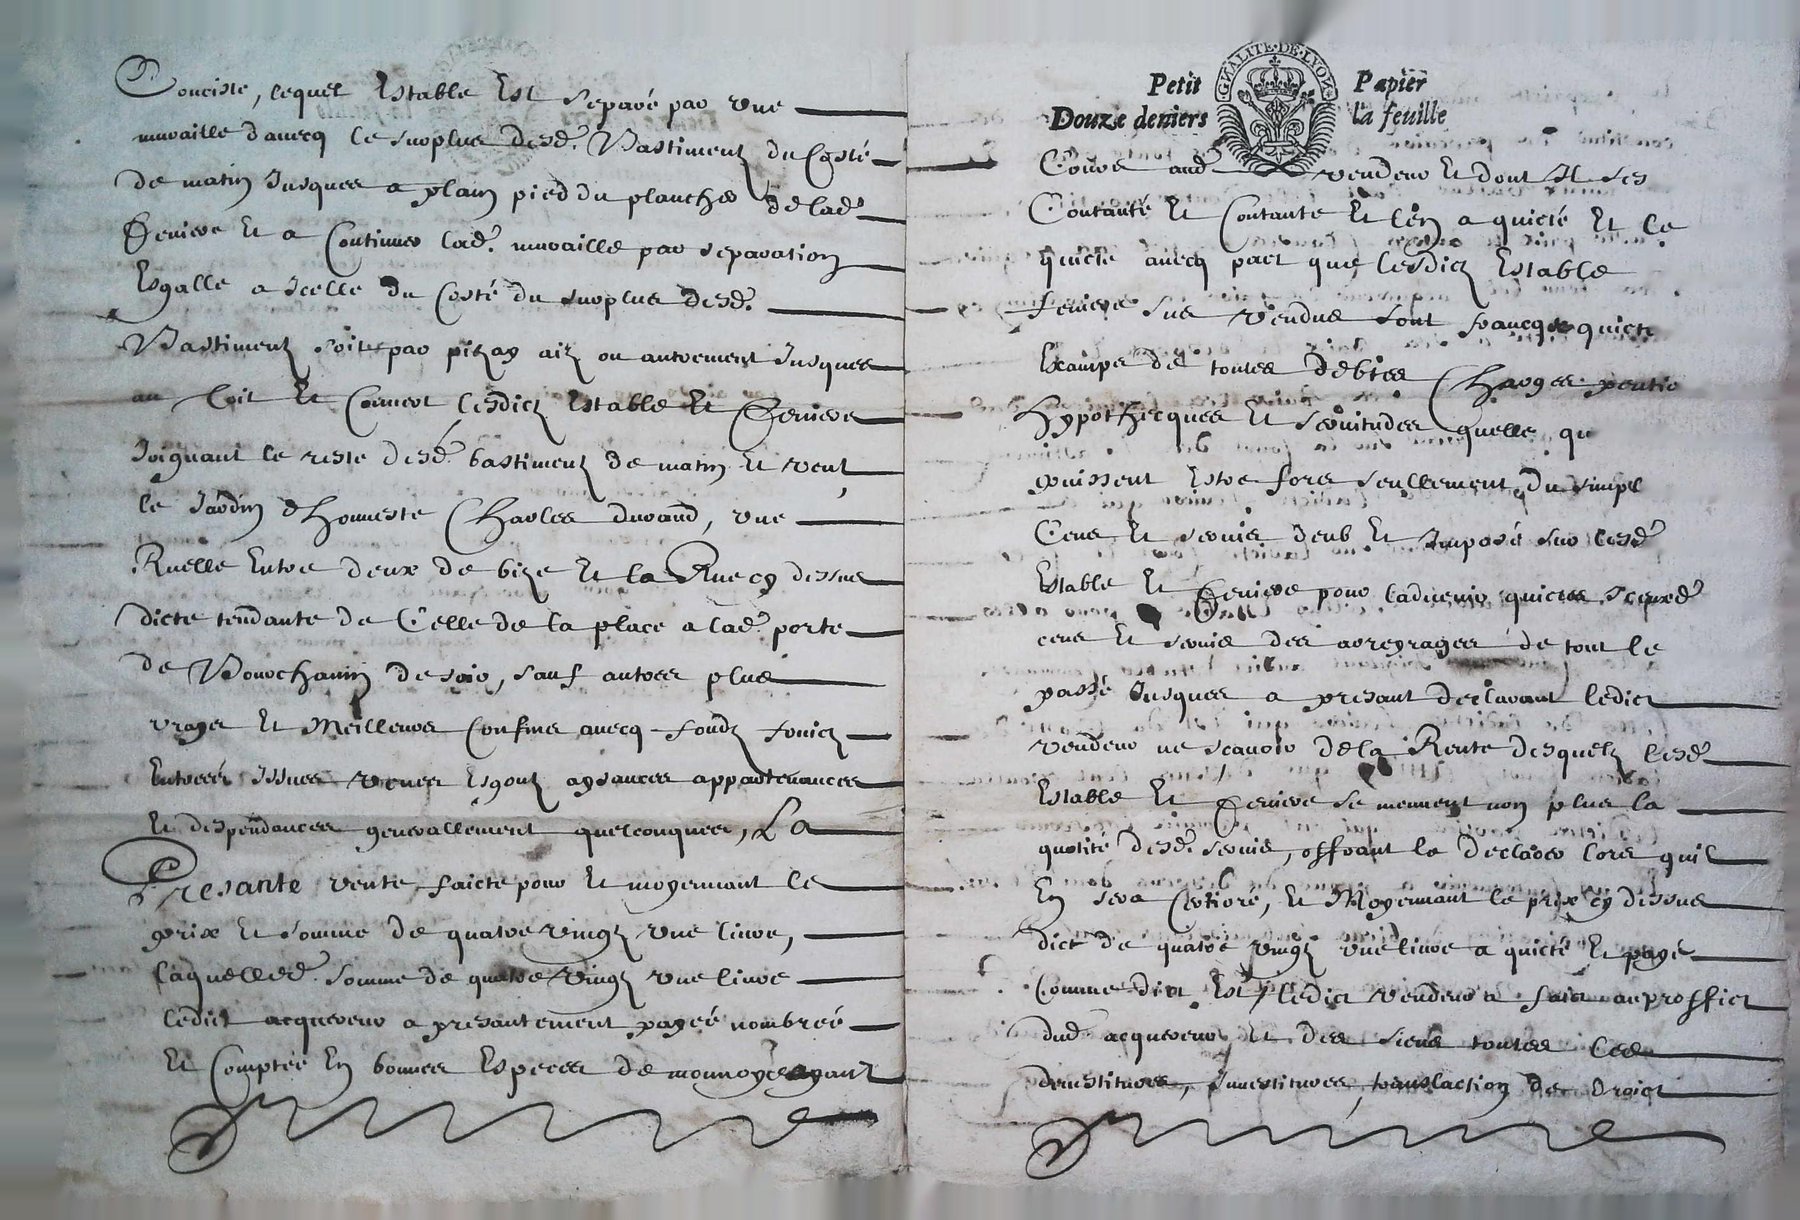 Conciste, lequel Estable Est separé par une
muraille d'avecq le surplus desd. Bastimentz du Costé
de matin Jusques a plain pied du plancher de lad.
feniere Et a Continuer lad. muraille par separation
Esgalle a Icelle du Costé du surplus desd.
Bastimentz soit par pizay aiz ou autrement Jusques
au Coit Et Couvert lesdictz Estable Et feniere
Joignant le reste desd. bastimentz de matin Et vent
le Jardin d'honneste Charles durand, une
Ruelle Entre deux de bize Et la Rue cy dessus
dicte tendante de Celle de la place a lad. porte
de Bourchanin de soir, sauf autres plus
vrays Et Meilleurs Confins avecq fondz
Entrees Issues veues Esgoutz aysances appartenances
Et despendances generallement quelconques, La
Presante vente faicte pour Et moyennant le
prix Et somme de quatre vingtz une livre,
laquelle d. somme de quatre vingtz une livre
ledict acquereur a presantement payeé nombreé
Et Comptée En bonnes Especes de monnoye ayantz
Petit Papier
Douze deniers la feuille
GNALITE·DE·LYON
Cours aud. vendeur Et dont Il s'es
Contanté Et Contante Et l'en a quicté Et le
quicte avecq pact que lesdictz Estable
feniere sus vendus sont francqz quictz
Exampz de toutes debtes Charges
Hypothecques Et servitudes quelle qu
puissent Estre fors seullement du simpl
Cens Et servis deub Et Imposé sur lesd.
Estable Et feniere pour l'advenir quictes
cens Et servis des arreyrages de tout le
passé Jusques a presant declarant ledict
vendeur ne scavoir de la Rente desquelz lesd.
Estable Et feniere se meuvent non plus la
quotité desd. servis, offrant le declarer lors quil
En sera Certioré, Et Moyennant le prix cy dessus
dict de quatre vingtz une livre a quicté Et payé
Comme dict Est ledict vendeur a faict au proffict
dud. acquereur Et des siens toutes les
devestitures, Investitures, translaction de droict